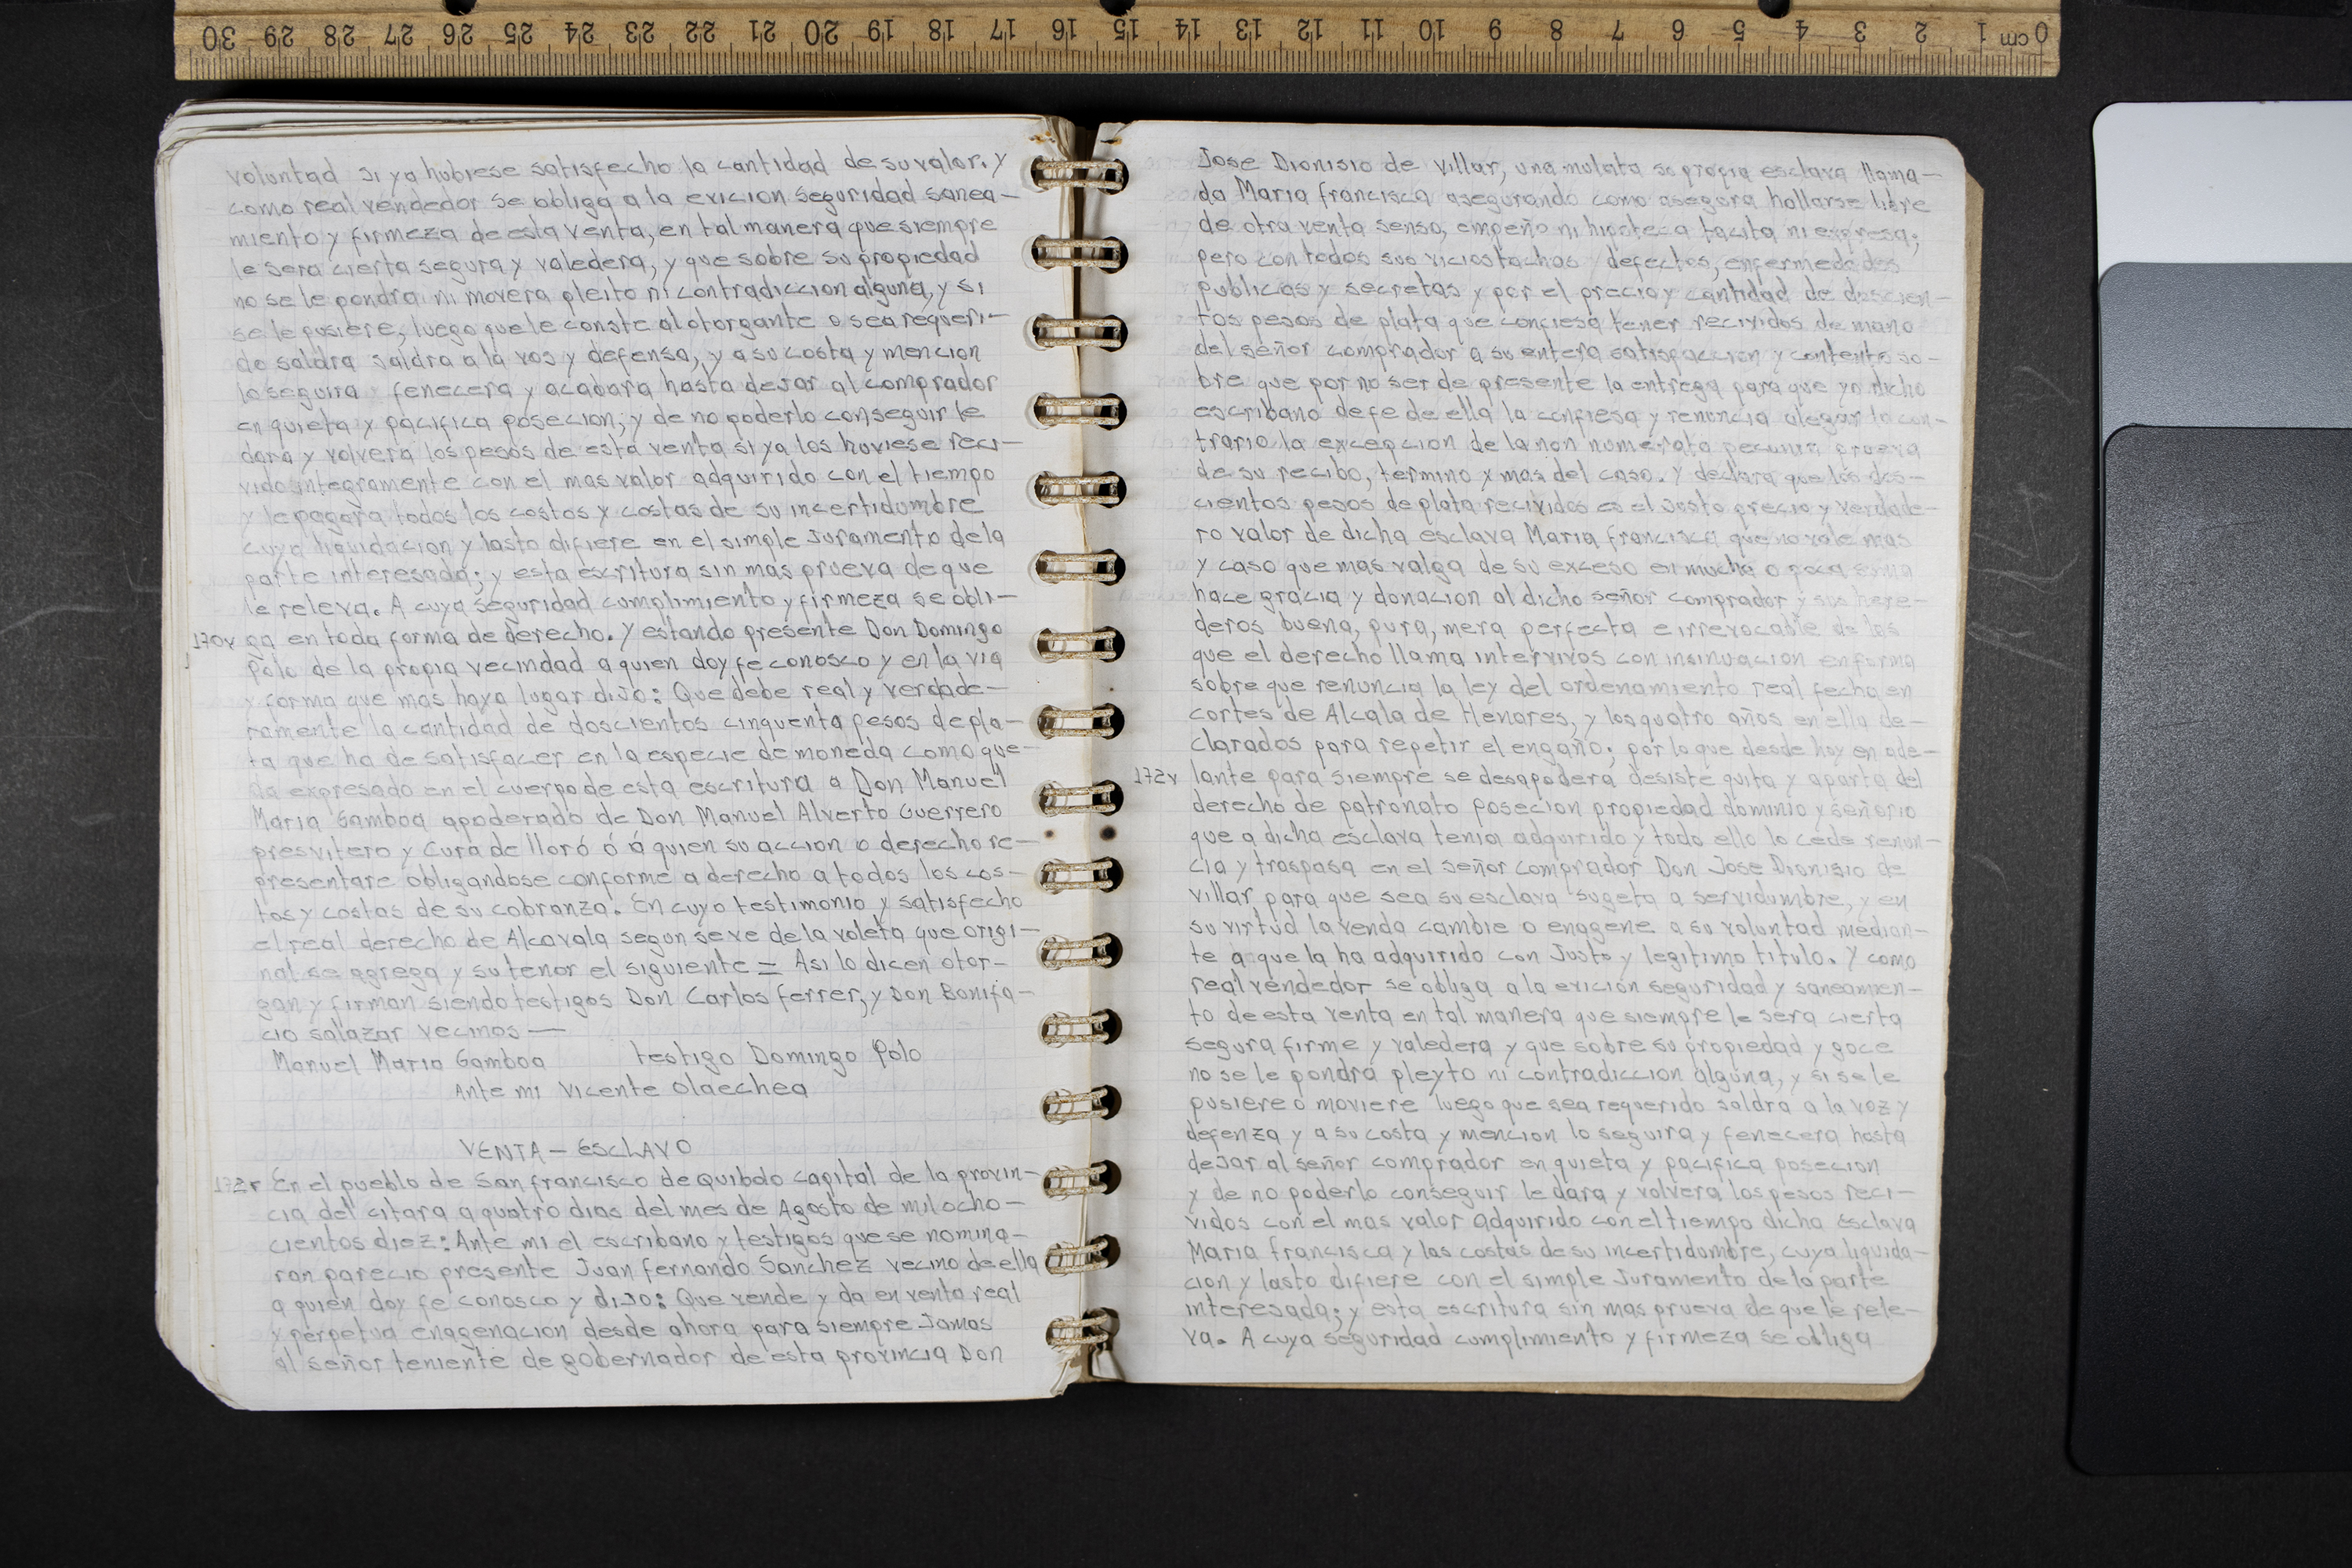 30 29 28 27 26 25 24 23 22 21 20 19 18 17 16 15 14 13 12 11 10 9 8 7 6 5 4 3 2 1 0 cm
voluntad si ya hubiese satisfecho la cantidad de su valor. y
como real vendedor se obliga a la evicion seguridad sanea-
miento y firmeza de esta venta, en tal manera que siempre
le sera cierta segura y valedera, y que sobre su propiedad
no se le pondra ni movera pleito ni contradiccion alguna, y si
se le pusiere, luego que le conste al otorgante o sea requeri-
do saldra saldra a la vos y defensa, y a su costa y mencion
lo seguira fenecera y acabara hasta dejar al comprador
en quieta y pacifica posecion; y de no poderlo conseguir le
dara y volvera los pesos de esta venta si ya los huviese reci-
vido integramente con el mas valor adquirido con el tiempo
y le pagara todos los costos y costas de su incertidumbre
cuya liquidacion y lasto difiere en el simple Juramento de la
parte interesada; y esta escritura sin mas prueva de que
le releva. A cuya seguridad cumplimiento y firmeza se obli-
170v ga en toda forma de derecho. Y estando presente Don Domingo
Polo de la propia vecindad a quien doy fe conosco y en la via
y forma que mas haya lugar dijo: Que debe real y verdade-
ramente la cantidad de doscientos cinquenta pesos de pla-
ta que ha de satisfacer en la especie de moneda como que-
da expresado en el cuerpo de esta escritura a Don Manuel
Maria Gamboa apoderado de Don Manuel Alverto Guerrero
presvitero y Cura de lloró ó á quien su accion o derecho re-
presentare obligandose conforme a derecho a todos los cos-
tos y costas de su cobranza. En cuyo testimonio y satisfecho
el real derecho de Alcavala segun se ve de la voleta que origi-
nal se agrega y su tenor el siguiente = Asi lo dicen otor-
gan y firman siendo testigos Don Carlos ferrer, y Don Bonifa-
cio salazar vecinos —
Manuel Maria Gamboa testigo Domingo Polo
Ante mi Vicente Olaechea
VENTA - ESCLAVO
172r En el pueblo de San francisco de Quibdo capital de la provin-
cia del citara a quatro dias del mes de Agosto de mil ocho-
cientos diez: Ante mi el escribano y testigos que se nomina-
ran parecio presente Juan fernando Sanchez vecino de ella
a quien doy fe conosco y dijo: Que vende y da en venta real
y perpetua enagenacion desde ahora para siempre Jamas
al señor teniente de gobernador de esta provincia Don
Jose Dionisio de Villar, una mulata su propia esclava llama-
da Maria francisca asegurando como asegura hallarse libre
de otra venta senso, empeño ni hipoteca tacita ni expresa;
pero con todos sus vicios tachas defectos, enfermedades
publicas y secretas y por el precio y cantidad de doscien-
tos pesos de plata que confiesa tener recividos de mano
del señor comprador a su entera satisfaccion y contento so-
bre que por no ser de presente la entrega para que yo dicho
escribano de fe de ella la confiesa y renuncia alegar lo con-
trario la excepcion de la non numerata pecunia prueva
de su recibo, termino y mas del caso. Y declara que los dos-
cientos pesos de plata recividos es el Justo precio y verdade-
ro valor de dicha esclava Maria francisca que no vale mas
y caso que mas valga de su exceso en mucha o poca suma
hace gracia y donacion al dicho señor comprador y sus here-
deros buena, pura, mera perfecta e irrevocable de las
que el derecho llama intervivos con insinuacion en forma
sobre que renuncia la ley del ordenamiento real fecha en
cortes de Alcala de Henares, y los quatro años en ella de-
clarados para repetir el engaño; por lo que desde hoy en ade-
172v lante para siempre se desapodera desiste quita y aparta del
derecho de patronato posecion propiedad dominio y señorio
que a dicha esclava tenia adquirido y todo ello lo cede renun-
cia y traspasa en el señor comprador Don Jose Dionisio de
Villar para que sea su esclava sugeta a servidumbre, y en
su virtud la venda cambie o enagene a su voluntad median-
te a que la ha adquirido con Justo y legitimo titulo. Y como
real vendedor se obliga a la evicion seguridad y saneamien-
to de esta venta en tal manera que siempre le sera cierta
segura firme y valedera y que sobre su propiedad y goce
no se le pondra pleyto ni contradiccion alguna, y si se le
pusiere o moviere luego que sea requerido saldra a la voz y
defenza y a su costa y mencion lo seguira y fenecera hasta
dejar al señor comprador en quieta y pacifica posecion
y de no poderlo conseguir le dara y volvera los pesos reci-
vidos con el mas valor adquirido con el tiempo dicha esclava
Maria francisca y las costas de su incertidumbre, cuya liquida-
cion y lasto difiere con el simple Juramento de la parte
interesada; y esta escritura sin mas prueva de que le rele-
va. A cuya seguridad cumplimiento y firmeza se obliga